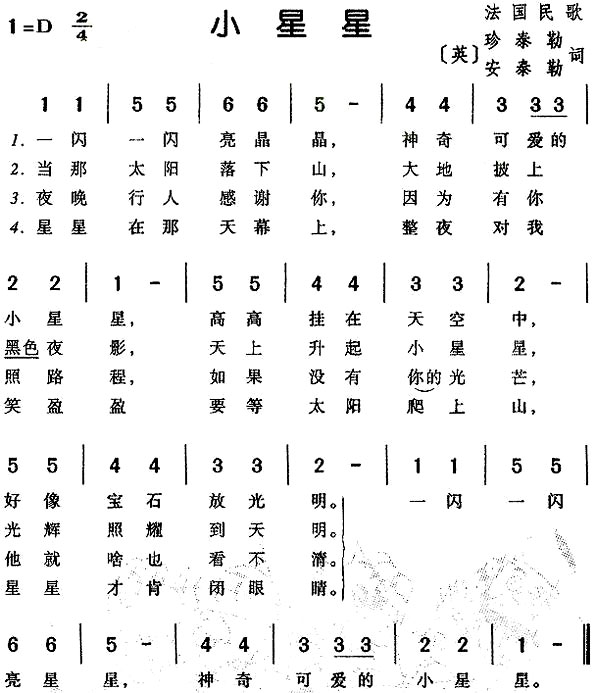 1=D 2/4 小星星 法国民歌
〔英〕珍泰勒 安泰勒 词
1 1 | 5 5 | 6 6 | 5 - | 4 4 | 3 3 3 |
1. 一闪 一闪 亮晶 晶, 神奇 可爱的
2. 当那 太阳 落下 山, 大地 披上
3. 夜晚 行人 感谢 你, 因为 有你
4. 星星 在那 天幕 上, 整夜 对我
2 2 | 1 - | 5 5 | 4 4 | 3 3 | 2 - |
小星 星, 高高 挂在 天空 中,
黑色夜 影, 天上 升起 小星 星,
照路 程, 如果 没有 你的光 芒,
笑盈 盈 要等 太阳 爬上 山,
5 5 | 4 4 | 3 3 | 2 - | 1 1 | 5 5 |
好像 宝石 放光 明。 一闪 一闪
光辉 照耀 到天 明。
他就 啥也 看不 清。
星星 才肯 闭眼 睛。
6 6 | 5 - | 4 4 | 3 3 3 | 2 2 | 1 - ‖
亮星 星, 神奇 可爱的 小星 星。